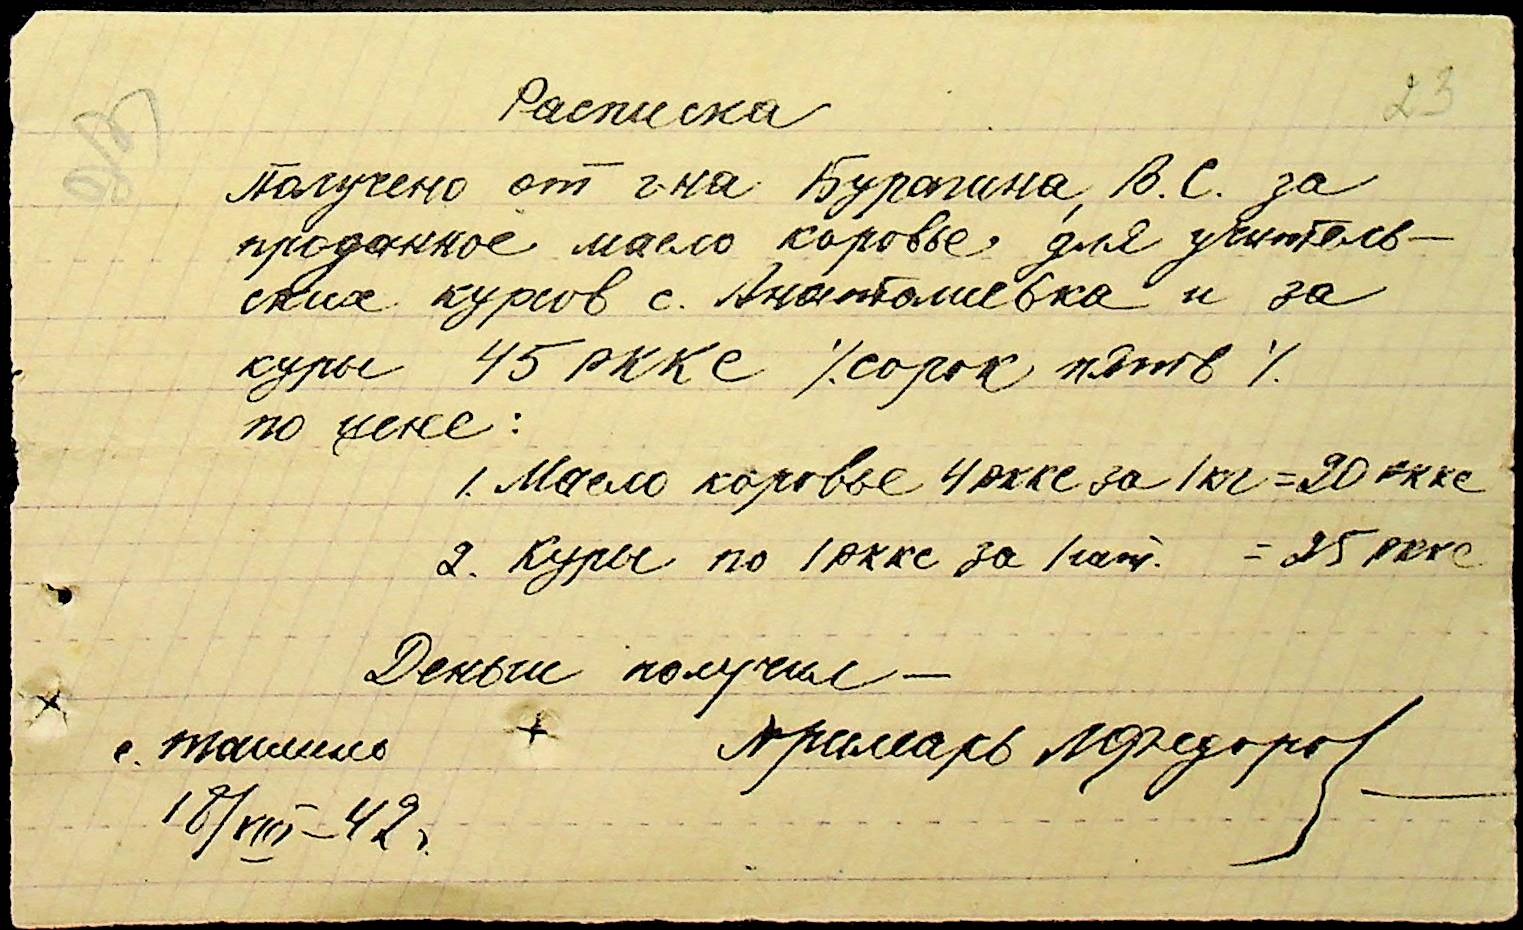 23
Расписка
Получено от г-на Бурагина, В.С. за
проданное масло коровье для учитель-
ских курсов с. Анатолиевка и за
куры 45 РККС /. сорок пять /.
по цене:
1. Масло коровье 4 РККС за 1 кг = 20 РККС
2. Куры по 1 РККС за 1 шт. = 25 РККС
Деньги получил —
с. Ташино
Примарь Федоров
18/VIII–42 г.